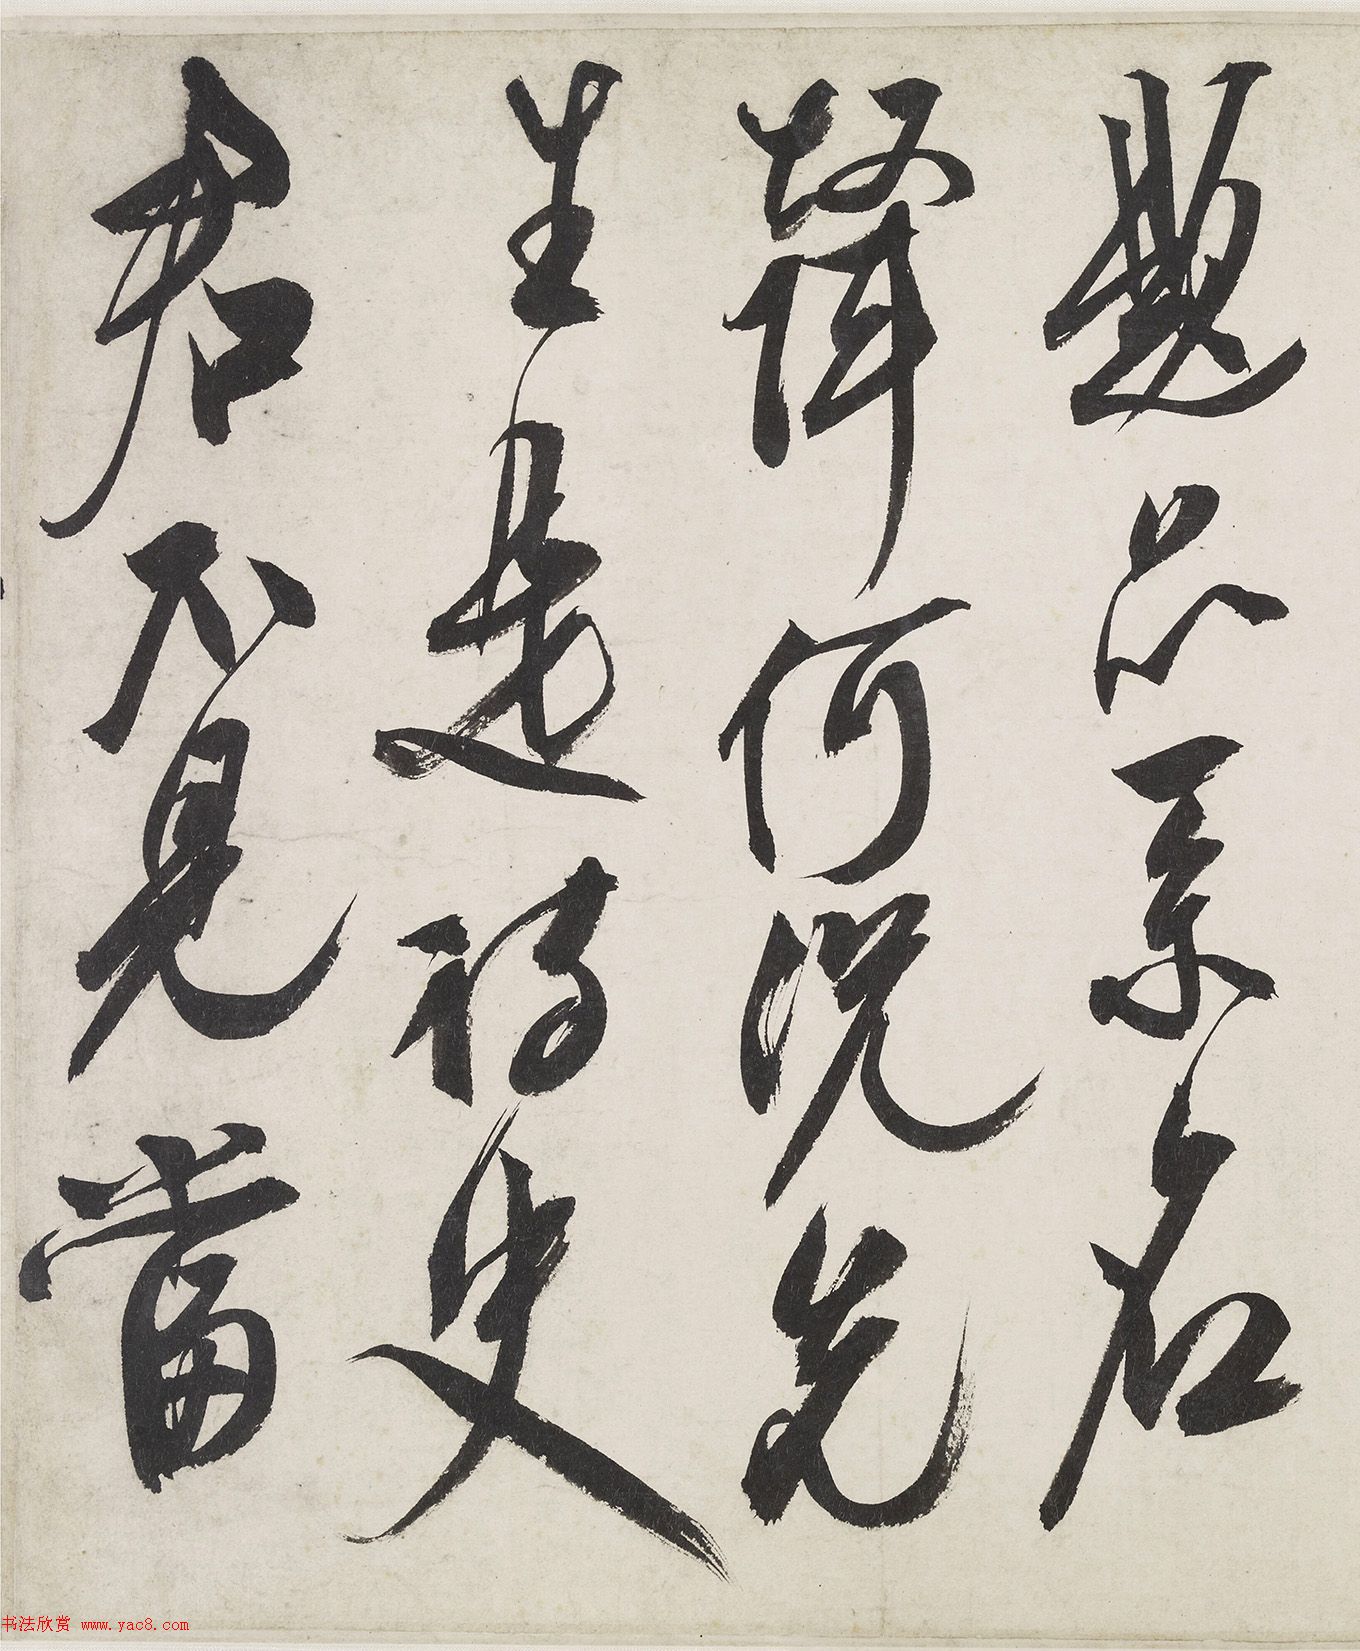 題品名
聲何況先
生是詩史
君不見當
书法欣赏 www.yac8.com